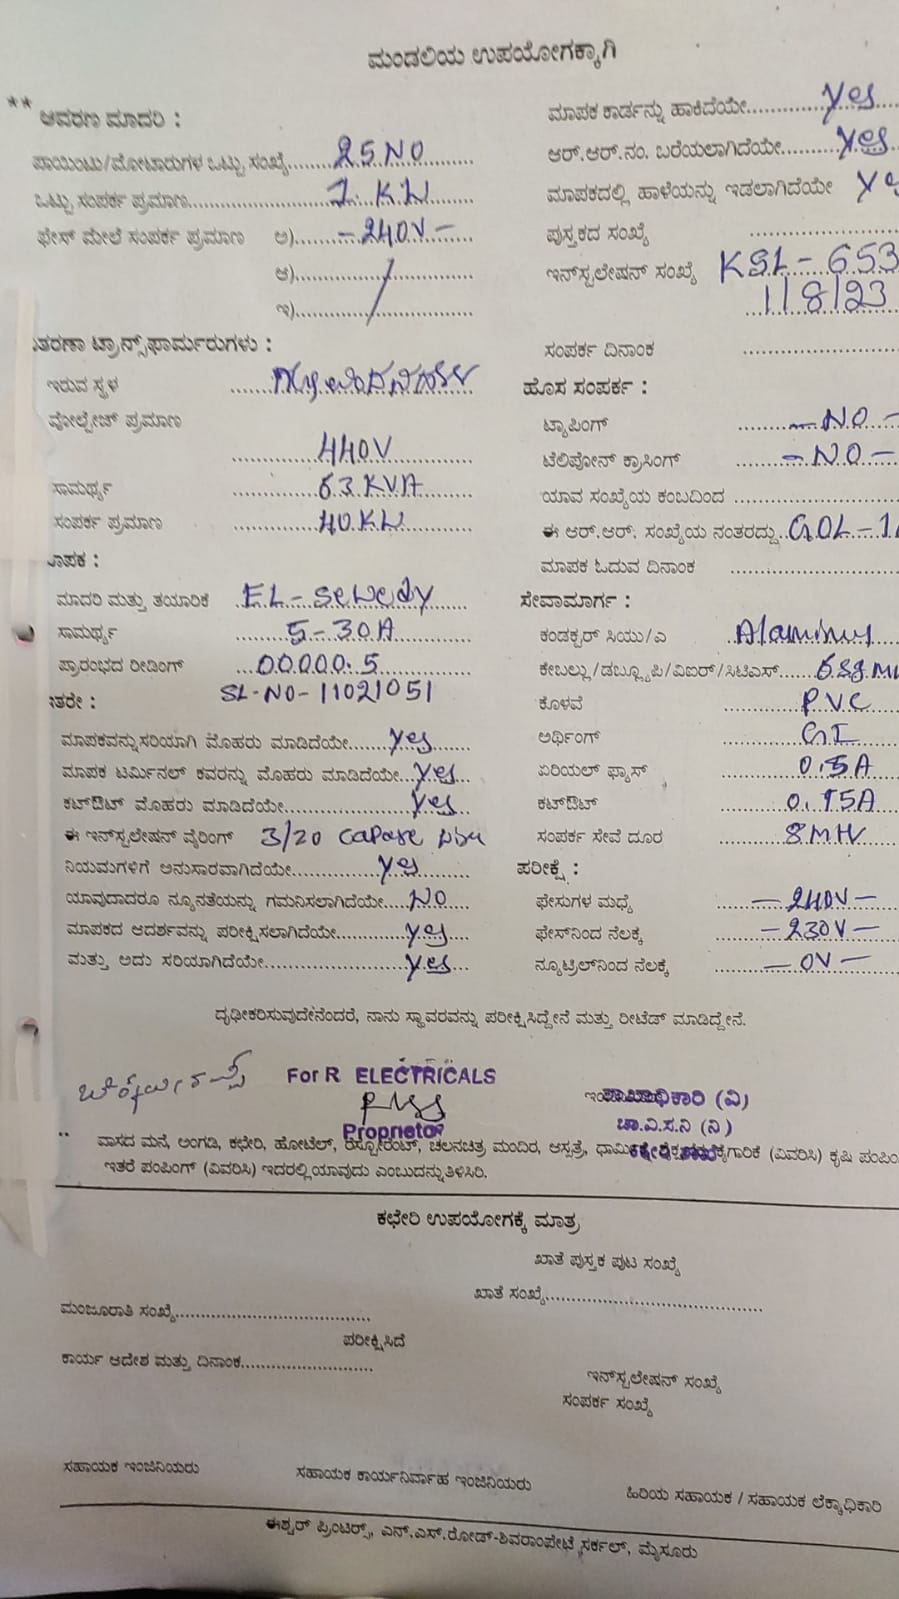 ಮಂಡಲಿಯ ಉಪಯೋಗಕ್ಕಾಗಿ
** ಆವರಣ ಮಾದರಿ :
ಪಾಯಿಂಟು/ಮೋಟಾರುಗಳ ಒಟ್ಟು ಸಂಖ್ಯೆ....... 25 NO
ಒಟ್ಟು ಸಂಪರ್ಕ ಪ್ರಮಾಣ....... 1. KW
ಫೇಸ್ ಮೇಲೆ ಸಂಪರ್ಕ ಪ್ರಮಾಣ ಅ)....... -240V-
ಆ).......
ಇ).......
ತರಣಾ ಟ್ರಾನ್ಸ್‌ಫಾರ್ಮರುಗಳು :
ಇರುವ ಸ್ಥಳ
ವೋಲ್ಟೇಜ್ ಪ್ರಮಾಣ
440V
ಸಾಮರ್ಥ್ಯ 63 KVA
ಸಂಪರ್ಕ ಪ್ರಮಾಣ 40 KW
ಾಪಕ :
ಮಾದರಿ ಮತ್ತು ತಯಾರಿಕೆ EL-Sewedy
ಸಾಮರ್ಥ್ಯ 5-30A
ಪ್ರಾರಂಭದ ರೀಡಿಂಗ್ 00000.5
SL-NO-11021051
ತರೇ :
ಮಾಪಕವನ್ನು ಸರಿಯಾಗಿ ಮೊಹರು ಮಾಡಿದೆಯೇ....... yes
ಮಾಪಕ ಟರ್ಮಿನಲ್ ಕವರನ್ನು ಮೊಹರು ಮಾಡಿದೆಯೇ... yes
ಕಟ್‌ಔಟ್ ಮೊಹರು ಮಾಡಿದೆಯೇ....... yes
ಈ ಇನ್‌ಸ್ಟಲೇಷನ್ ವೈರಿಂಗ್ 3/20
ನಿಯಮಗಳಿಗೆ ಅನುಸಾರವಾಗಿದೆಯೇ....... yes
ಯಾವುದಾದರೂ ನ್ಯೂನತೆಯನ್ನು ಗಮನಿಸಲಾಗಿದೆಯೇ.... NO
ಮಾಪಕದ ಆದರ್ಶವನ್ನು ಪರೀಕ್ಷಿಸಲಾಗಿದೆಯೇ....... yes
ಮತ್ತು ಅದು ಸರಿಯಾಗಿದೆಯೇ....... yes
ಮಾಪಕ ಕಾರ್ಡನ್ನು ಹಾಕಿದೆಯೇ....... yes
ಆರ್.ಆರ್.ನಂ. ಬರೆಯಲಾಗಿದೆಯೇ....... yes
ಮಾಪಕದಲ್ಲಿ ಹಾಳೆಯನ್ನು ಇಡಲಾಗಿದೆಯೇ
ಪುಸ್ತಕದ ಸಂಖ್ಯೆ
ಇನ್‌ಸ್ಟಲೇಷನ್ ಸಂಖ್ಯೆ KSL-653
1/8/23
ಸಂಪರ್ಕ ದಿನಾಂಕ
ಹೊಸ ಸಂಪರ್ಕ :
ಟ್ಯಾಪಿಂಗ್ -NO-
ಟೆಲಿಫೋನ್ ಕ್ರಾಸಿಂಗ್ -NO-
ಯಾವ ಸಂಖ್ಯೆಯ ಕಂಬದಿಂದ
ಈ ಆರ್.ಆರ್. ಸಂಖ್ಯೆಯ ನಂತರದ್ದು
ಮಾಪಕ ಓದುವ ದಿನಾಂಕ
ಸೇವಾಮಾರ್ಗ :
ಕಂಡಕ್ಟರ್ ಸಿಯು/ಎ
ಕೇಬಲ್ಲು/ಡಬ್ಲ್ಯೂಪಿ/ವಿಐಆರ್/ಸಿಟಿಎಸ್.......
ಕೊಳವೆ PVC
ಅರ್ಥಿಂಗ್ GI
ಏರಿಯಲ್ ಫ್ಯೂಸ್ 0.5A
ಕಟ್‌ಔಟ್
ಸಂಪರ್ಕ ಸೇವೆ ದೂರ
ಪರೀಕ್ಷೆ :
ಫೇಸುಗಳ ಮಧ್ಯೆ -240V-
ಫೇಸ್‌ನಿಂದ ನೆಲಕ್ಕೆ -230V-
ನ್ಯೂಟ್ರಲ್‌ನಿಂದ ನೆಲಕ್ಕೆ -0V-
ದೃಢೀಕರಿಸುವುದೇನೆಂದರೆ, ನಾನು ಸ್ಥಾವರವನ್ನು ಪರೀಕ್ಷಿಸಿದ್ದೇನೆ ಮತ್ತು ರೀಟೆಡ್ ಮಾಡಿದ್ದೇನೆ.
For R ELECTRICALS
Proprietor
ಶಾಖಾಧಿಕಾರಿ (ವಿ)
ಚಾ.ವಿ.ಸ.ನಿ (ನಿ)
.. ವಾಸದ ಮನೆ, ಅಂಗಡಿ, ಕಛೇರಿ, ಹೋಟೆಲ್, ರೆಸ್ಟೋರೆಂಟ್, ಚಲನಚಿತ್ರ ಮಂದಿರ, ಆಸ್ಪತ್ರೆ, (ವಿವರಿಸಿ) ಕೃಷಿ
ಇತರೆ ಪಂಪಿಂಗ್ (ವಿವರಿಸಿ) ಇದರಲ್ಲಿ ಯಾವುದು ಎಂಬುದನ್ನು ತಿಳಿಸಿರಿ.
ಕಛೇರಿ ಉಪಯೋಗಕ್ಕೆ ಮಾತ್ರ
ಖಾತೆ ಪುಸ್ತಕ ಪುಟ ಸಂಖ್ಯೆ
ಖಾತೆ ಸಂಖ್ಯೆ.......
ಮಂಜೂರಾತಿ ಸಂಖ್ಯೆ.......
ಪರೀಕ್ಷಿಸಿದೆ
ಕಾರ್ಯ ಆದೇಶ ಮತ್ತು ದಿನಾಂಕ.......
ಇನ್‌ಸ್ಟಲೇಷನ್ ಸಂಖ್ಯೆ
ಸಂಪರ್ಕ ಸಂಖ್ಯೆ
ಸಹಾಯಕ ಇಂಜಿನಿಯರು ಸಹಾಯಕ ಕಾರ್ಯನಿರ್ವಾಹ ಇಂಜಿನಿಯರು ಹಿರಿಯ ಸಹಾಯಕ / ಸಹಾಯಕ ಲೆಕ್ಕಾಧಿಕಾರಿ
ಈಶ್ವರ್ ಪ್ರಿಂಟರ್ಸ್, ಎನ್.ಎಸ್.ರೋಡ್-ಶಿವರಾಂಪೇಟೈ ಸರ್ಕಲ್, ಮೈಸೂರು